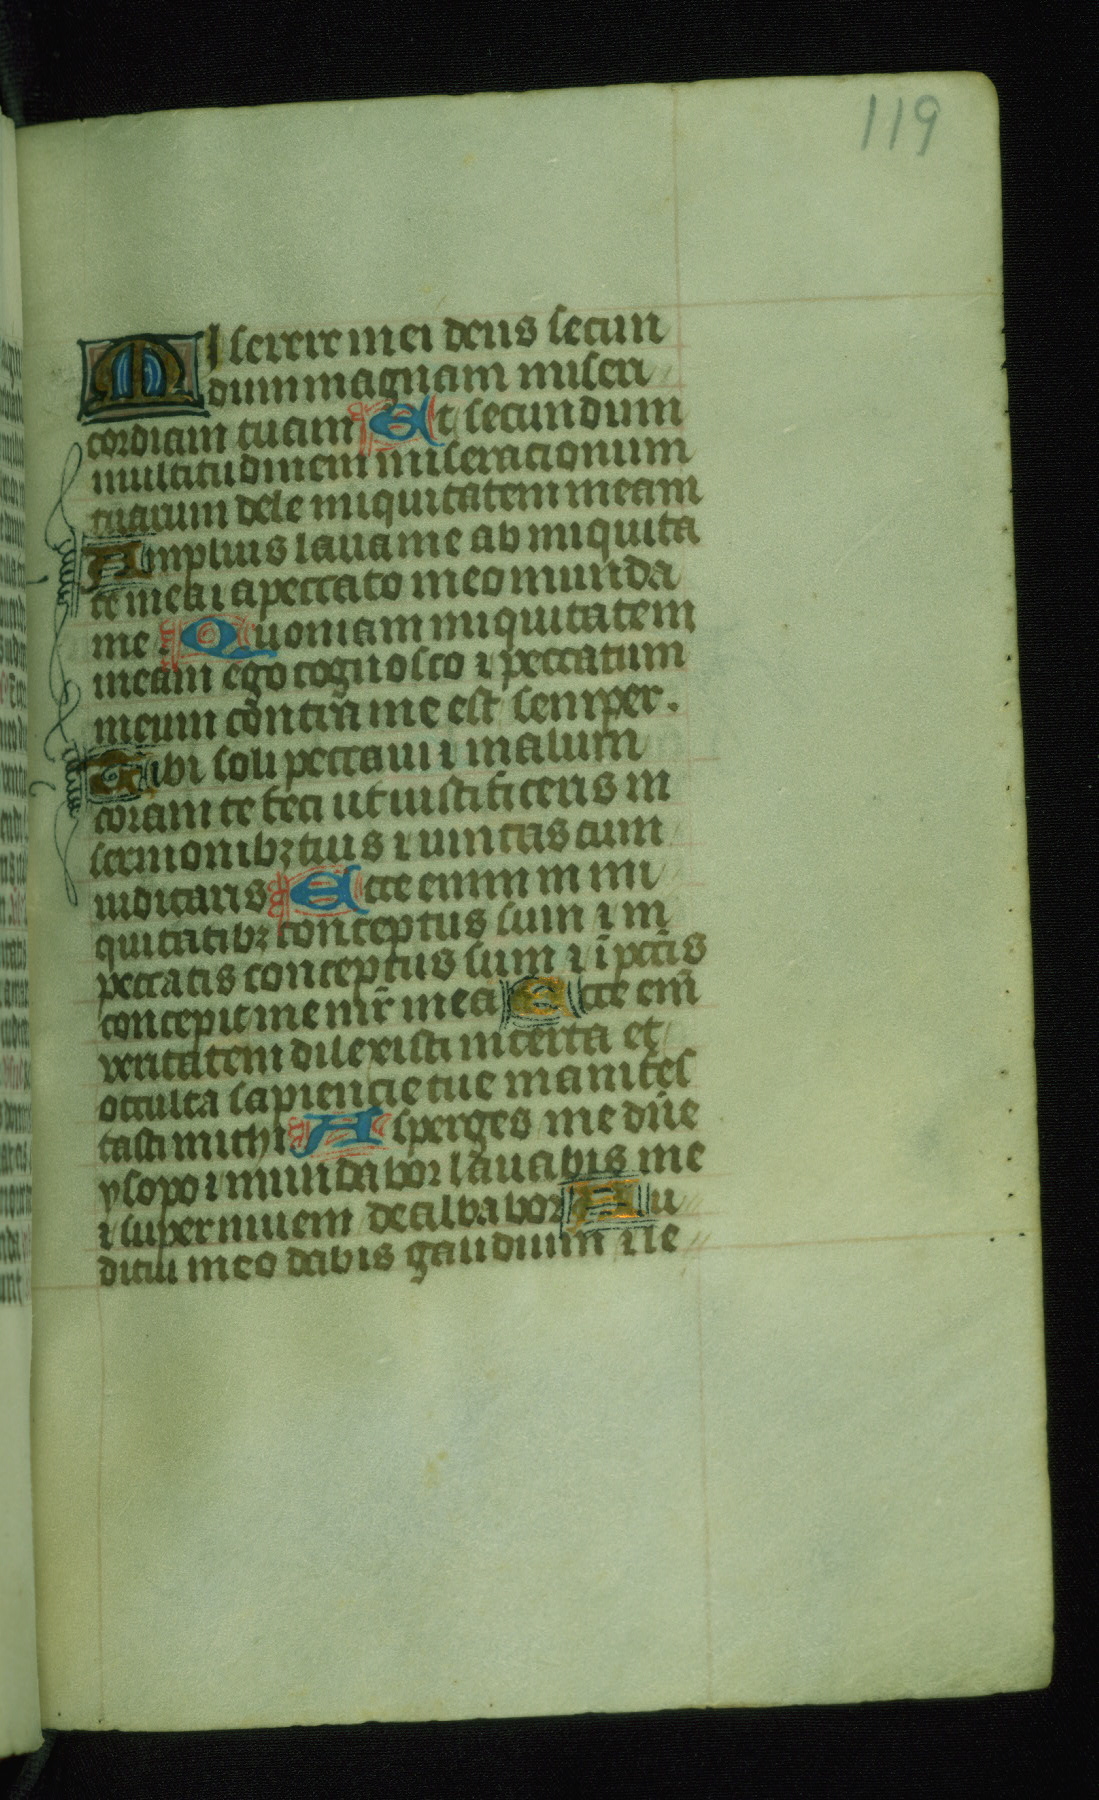 119
Miserere mei deus secun
dum magnam miseri
cordiam tuam Et secundum
multitudinem miseracionum
tuarum dele iniquitatem meam
Amplius laua me ab iniquita
te mea ⁊ a peccato meo munda
me. Quoniam iniquitatem
meam ego cognosco ⁊ peccatum
meum cōtra me est semper.
Tibi soli peccaui ⁊ malum
coram te feci ut iustificeris in
sermonibꝫ tuis ⁊ uincas cum
iudicaris Ecce enim in ini
quitatibꝫ conceptus sum ⁊ in
peccatis conceptus sum ⁊ ī pccīs
concepit me mr̄ mea Ecce em̄
veritatem dilexisti incerta et
occulta sapiencie tue manifes
tasti michi Asperges me dn̄e
ysopo ⁊ mundabor lauabis me
⁊ super niuem dealbabor Au
ditui meo dabis gaudium ⁊ le